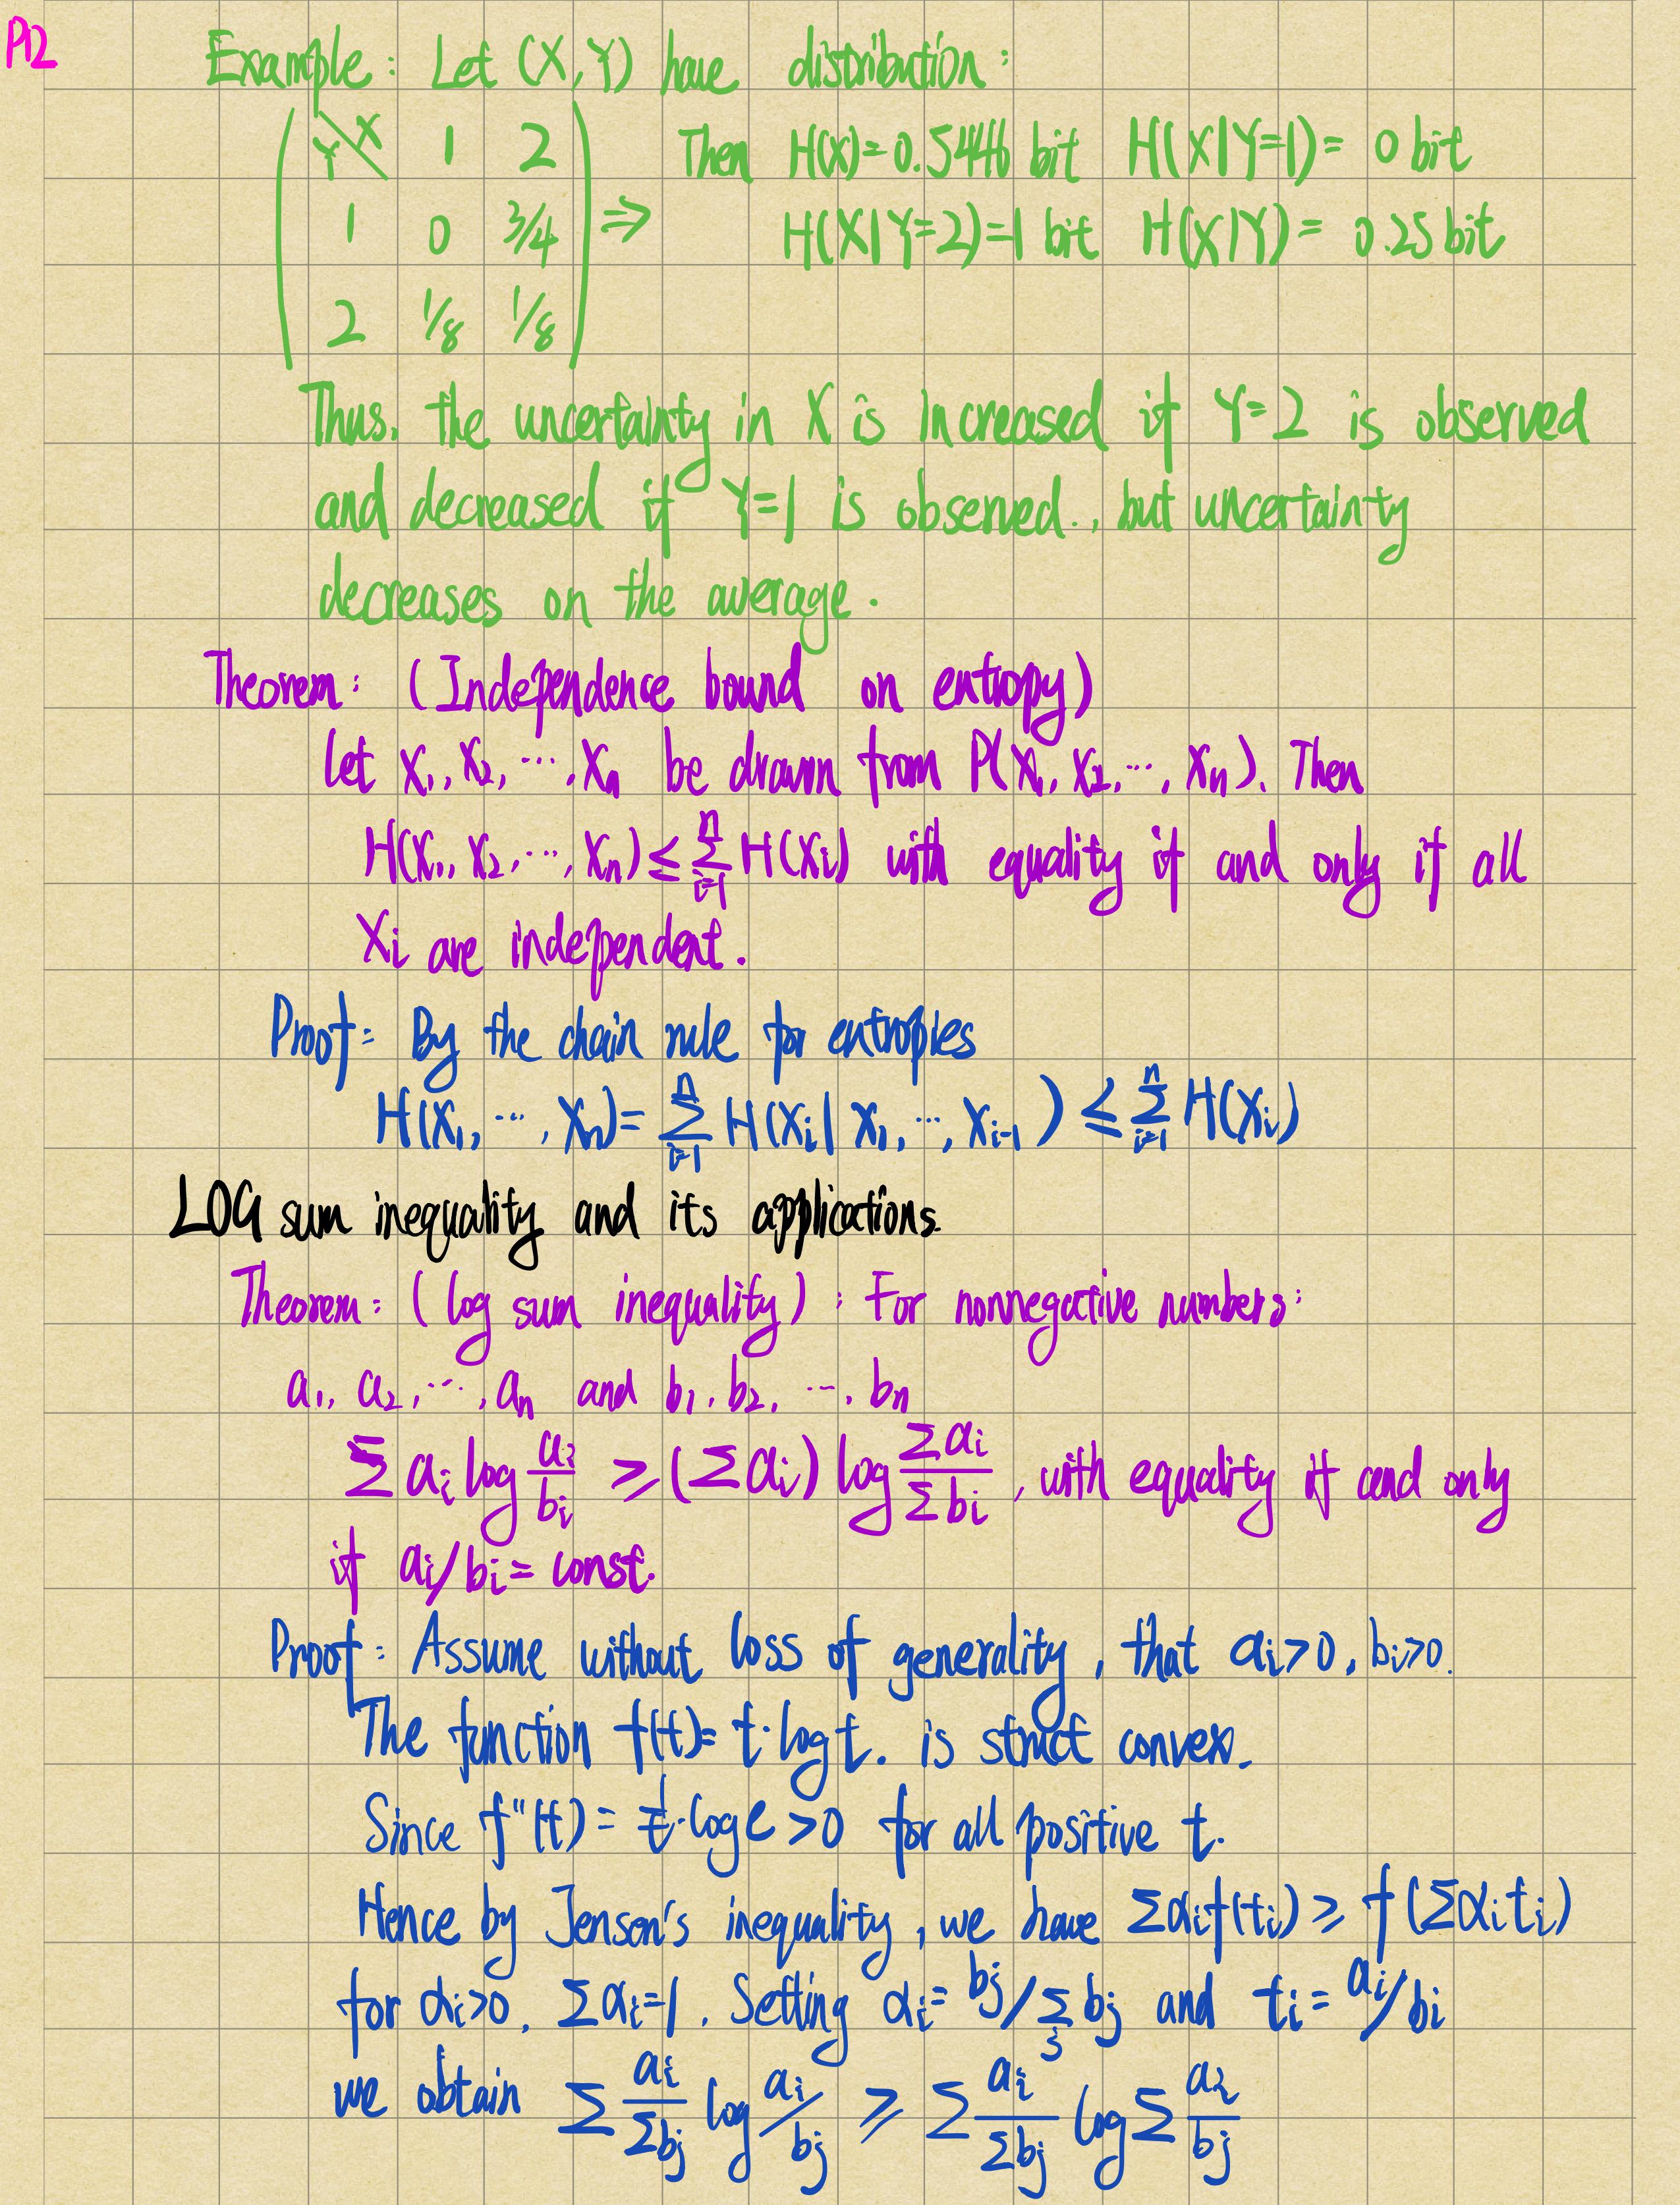 P12
Example: Let (X,Y) have distribution:
Y\X 1 2 Then H(X)=0.5446 bit H(X|Y=1)= 0 bit
1 0 3/4 ⇒ H(X|Y=2)=1 bit H(X|Y)= 0.25 bit
2 1/8 1/8
Thus, the uncertainty in X is increased if Y=2 is observed
and decreased if Y=1 is observed., but uncertainty
decreases on the average.
Theorem: (Independence bound on entropy)
Let X₁, X₂, ⋯, Xₙ be drawn from P(X₁, X₂, ⋯, Xₙ). Then
H(X₁, X₂, ⋯, Xₙ) ≤ ∑ᵢ₌₁ⁿ H(Xᵢ) with equality if and only if all
Xᵢ are independent.
Proof: By the chain rule for entropies
H(X₁, ⋯, Xₙ)= ∑ᵢ₌₁ⁿ H(Xᵢ| X₁, ⋯, Xᵢ₋₁) ≤ ∑ᵢ₌₁ⁿ H(Xᵢ)
LOG sum inequality and its applications.
Theorem: (log sum inequality): For nonnegative numbers:
a₁, a₂, ⋯, aₙ and b₁, b₂, ⋯, bₙ
∑ aᵢ log aᵢ/bᵢ ≥ (∑ aᵢ) log ∑aᵢ/∑bᵢ, with equality if and only
if aᵢ/bᵢ = const.
Proof: Assume without loss of generality, that aᵢ>0, bᵢ>0.
The function f(t)= t·log t. is strict convex.
Since f''(t) = 1/t·log e >0 for all positive t.
Hence by Jensen's inequality, we have ∑αᵢf(tᵢ) ≥ f(∑αᵢtᵢ)
for αᵢ>0, ∑αᵢ=1. Setting αᵢ= bj/∑j bj and tᵢ= aᵢ/bᵢ
we obtain ∑ aᵢ/∑bj log aᵢ/bj ≥ ∑ aᵢ/∑bj log ∑ aᵢ/bj